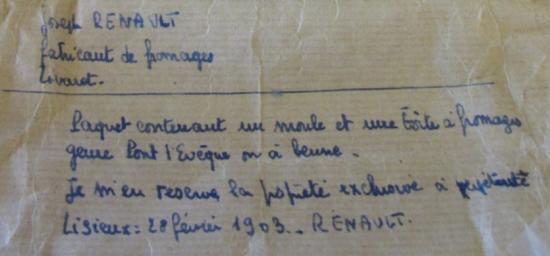 Joseph RENAULT
fabricant de fromages
Livarot.
Paquet contenant un moule et une boîte à fromages
genre Pont l'Evêque ou à beurre.
Je m'en reserve la propiété exclusive à perpétuité
Lisieux: 28 février 1903.. RENAULT.